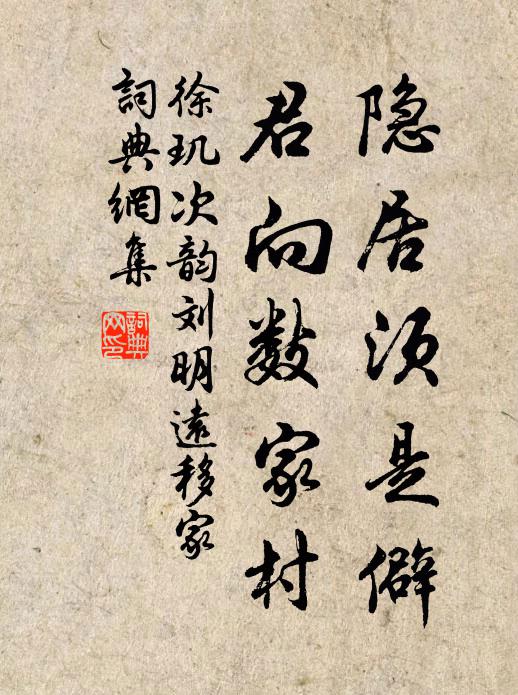 隐居须是僻
君向数家村
徐玑次韵刘明遠移家
詞典網集
詞典网印